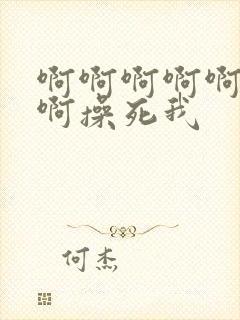 啊啊啊啊啊
啊操死我
何杰